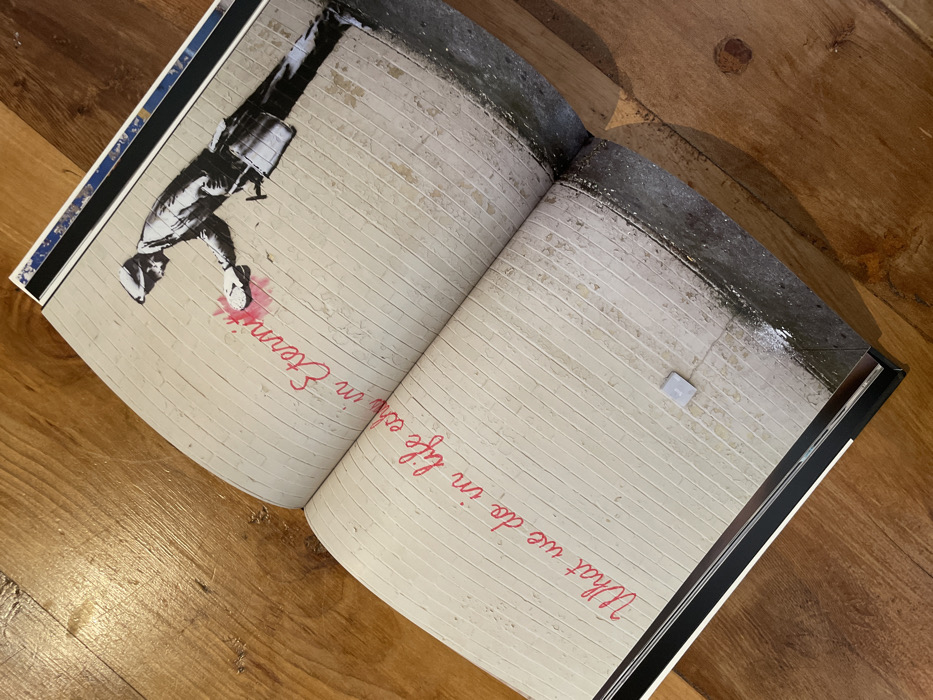 What we do in life echoes in Eternity